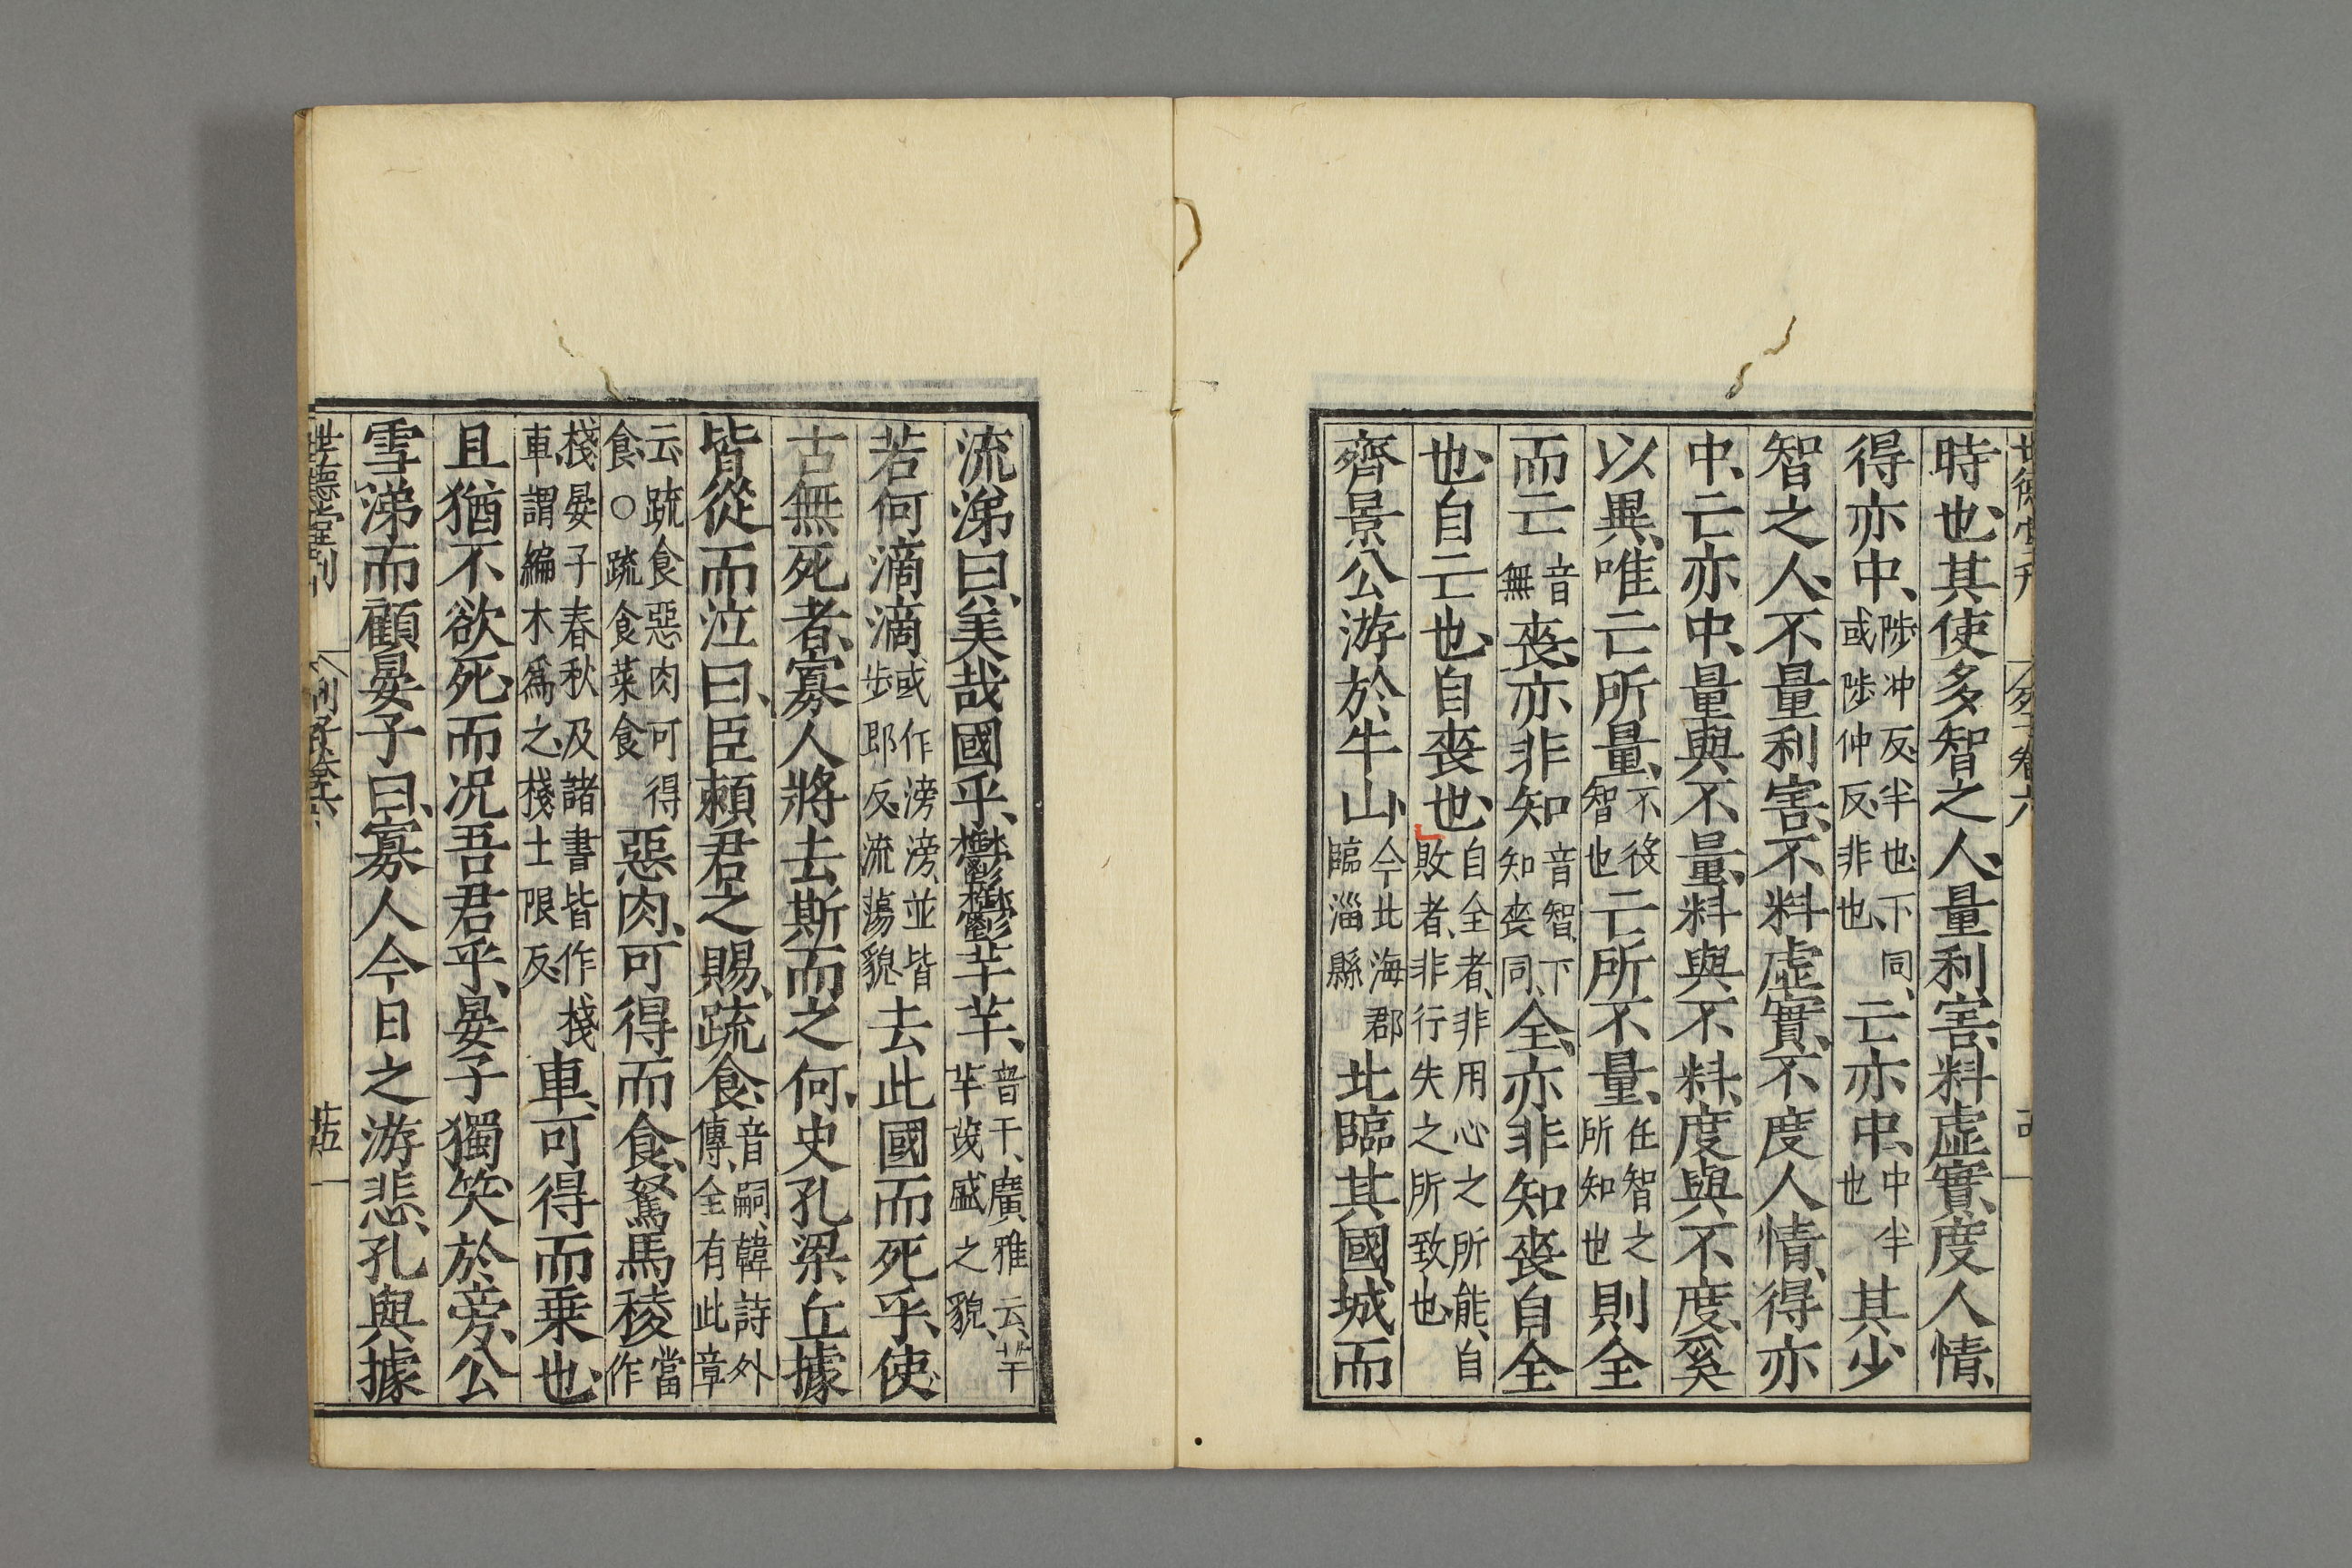 時也、其使多智之人、量利害、料虚實、度人情、
得亦中、陟冲反、半也、下同、或陟仲反、非也、亡亦中、中半也其少
智之人、不量利害、不料虚實、不度人情、得亦
中、亡亦中、量與不量、料與不料、度與不度、奚
以異、唯亡所量、不役智也亡所不量、任智之所知也則全
而亡音無喪、亦非知音智、下知喪同、全、亦非知喪自全
也、自亡也、自喪也、自全者、非用心之所能、自敗者、非行失之所致也、
齊景公游於牛山、今北海郡臨淄縣北臨其國城而
流涕曰、美哉國乎、鬱鬱芊芊、音千、廣雅云、芊芊茂盛之貌、
若何滴滴或作滂滂、並皆步郎反、流蕩貌去此國而死乎、使
古無死者、寡人將去斯而之何、史孔梁丘據
皆從而泣曰、臣賴君之賜、疏食、音嗣、韓詩外傳、全有此章
云、疏食惡肉可得食、○疏食菜食惡肉、可得而食、駑馬稜當作
棧、晏子春秋及諸書皆作棧車、謂編木爲之、棧士限反、車、可得而乗也、
且猶不欲死、而况吾君乎、晏子獨笑於旁、公
雪涕而顧晏子曰、寡人今日之游悲、孔與據
世德堂刊 列子卷六